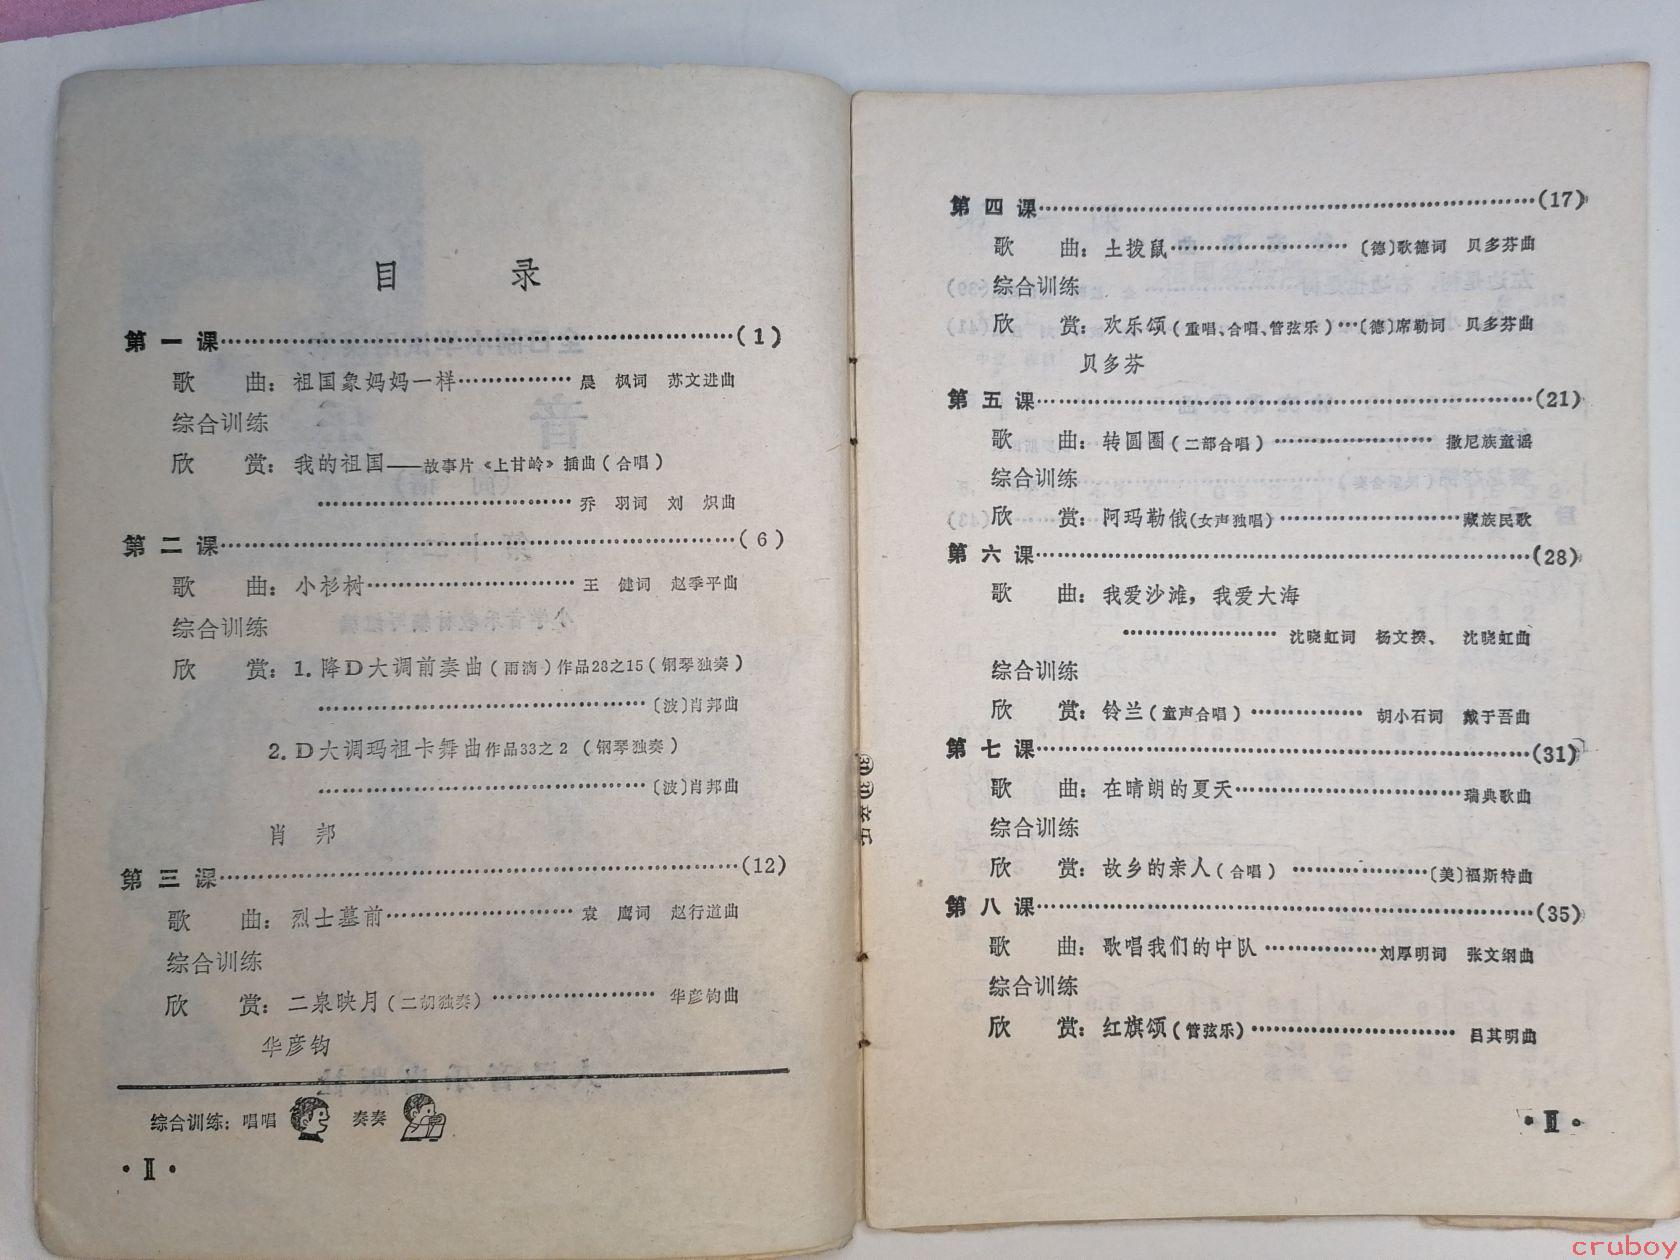 目 录
第 一 课……………………………………(1)
歌 曲：祖国象妈妈一样…………… 晨 枫词 苏文进曲
综合训练
欣 赏：我的祖国——故事片《上甘岭》插曲(合唱)
………………………… 乔 羽词 刘 炽曲
第 二 课……………………………………(6)
歌 曲：小杉树………………………… 王 健词 赵季平曲
综合训练
欣 赏：1.降D大调前奏曲(雨滴)作品28之15(钢琴独奏)
……………………………………〔波〕肖邦曲
2.D大调玛祖卡舞曲作品33之2 (钢琴独奏)
……………………………………〔波〕肖邦曲
肖 邦
第 三 课……………………………………(12)
歌 曲：烈士墓前…………………… 袁 鹰词 赵行道曲
综合训练
欣 赏：二泉映月(二胡独奏)………………… 华彦钧曲
华彦钧
综合训练：唱唱 奏奏
·Ⅰ·
第 四 课……………………………………(17)
歌 曲：土拨鼠…………………… 〔德〕歌德词 贝多芬曲
综合训练
欣 赏：欢乐颂(重唱、合唱、管弦乐)…〔德〕席勒词 贝多芬曲
贝多芬
第 五 课……………………………………(21)
歌 曲：转圆圈(二部合唱)………………… 撒尼族童谣
综合训练
欣 赏：阿玛勒俄(女声独唱)……………………藏族民歌
第 六 课……………………………………(28)
歌 曲：我爱沙滩，我爱大海
………………… 沈晓虹词 杨文揆、 沈晓虹曲
综合训练
欣 赏：铃兰(童声合唱)…………… 胡小石词 戴于吾曲
第 七 课……………………………………(31)
歌 曲：在晴朗的夏天…………………………瑞典歌曲
综合训练
欣 赏：故乡的亲人(合唱) ………………〔美〕福斯特曲
第 八 课……………………………………(35)
歌 曲：歌唱我们的中队……………刘厚明词 张文纲曲
综合训练
欣 赏：红旗颂(管弦乐)………………………… 吕其明曲
·Ⅱ·
cruboy